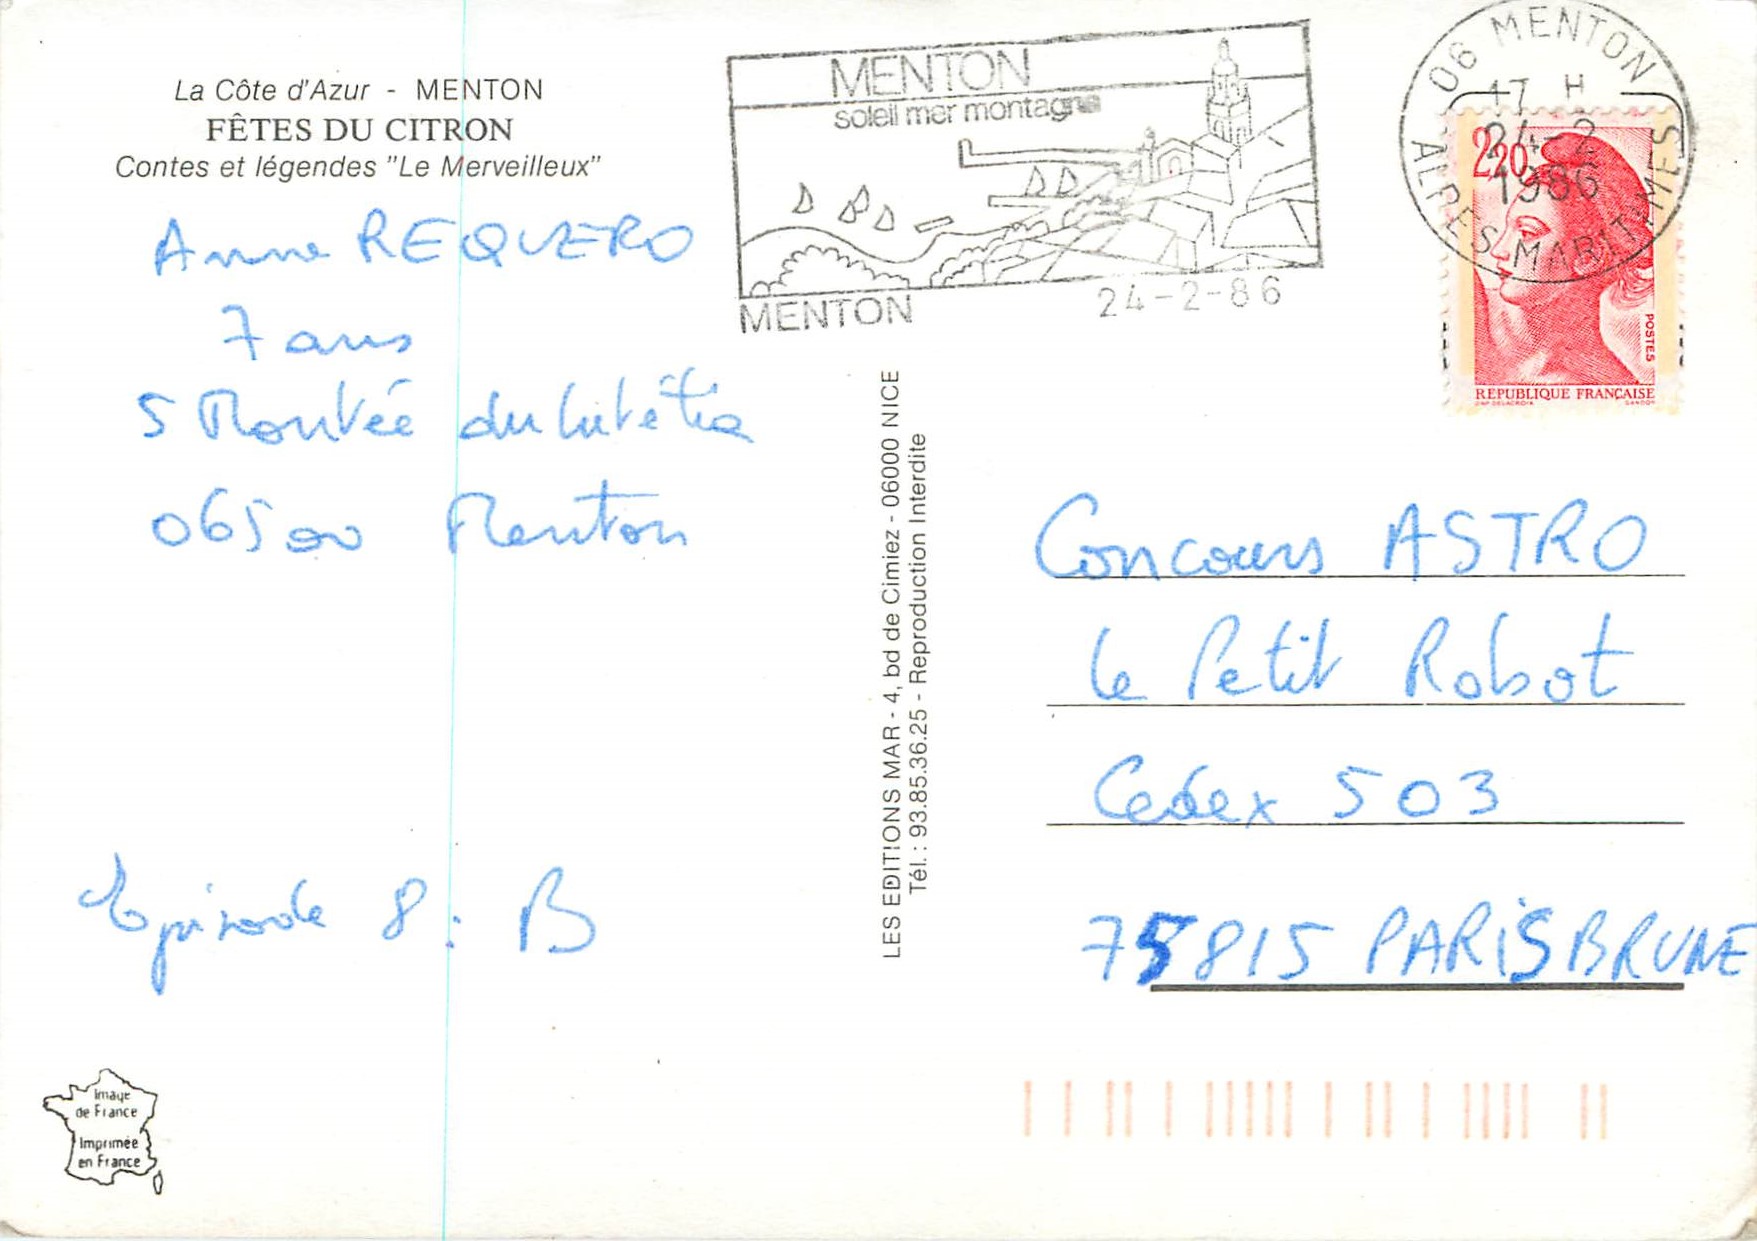 La Côte d'Azur - MENTON
FÊTES DU CITRON
Contes et légendes "Le Merveilleux"
Anne REQUERO
7 ans
5 Montée du lutétia
06500 Menton
Episode 8 : B
Image
de France
Imprimée
en France
LES EDITIONS MAR - 4, bd de Cimiez - 06000 NICE
Tél. : 93.85.36.25 - Reproduction Interdite
MENTON
soleil mer montagne
MENTON 24-2-86
06 MENTON
17 H
24-2
1986
ALPES-MARITIMES
2,20
POSTES
REPUBLIQUE FRANÇAISE
D'AP. DELACROIX GANDON
Concours ASTRO
le Petit Robot
Cedex 503
75815 PARIS BRUNE